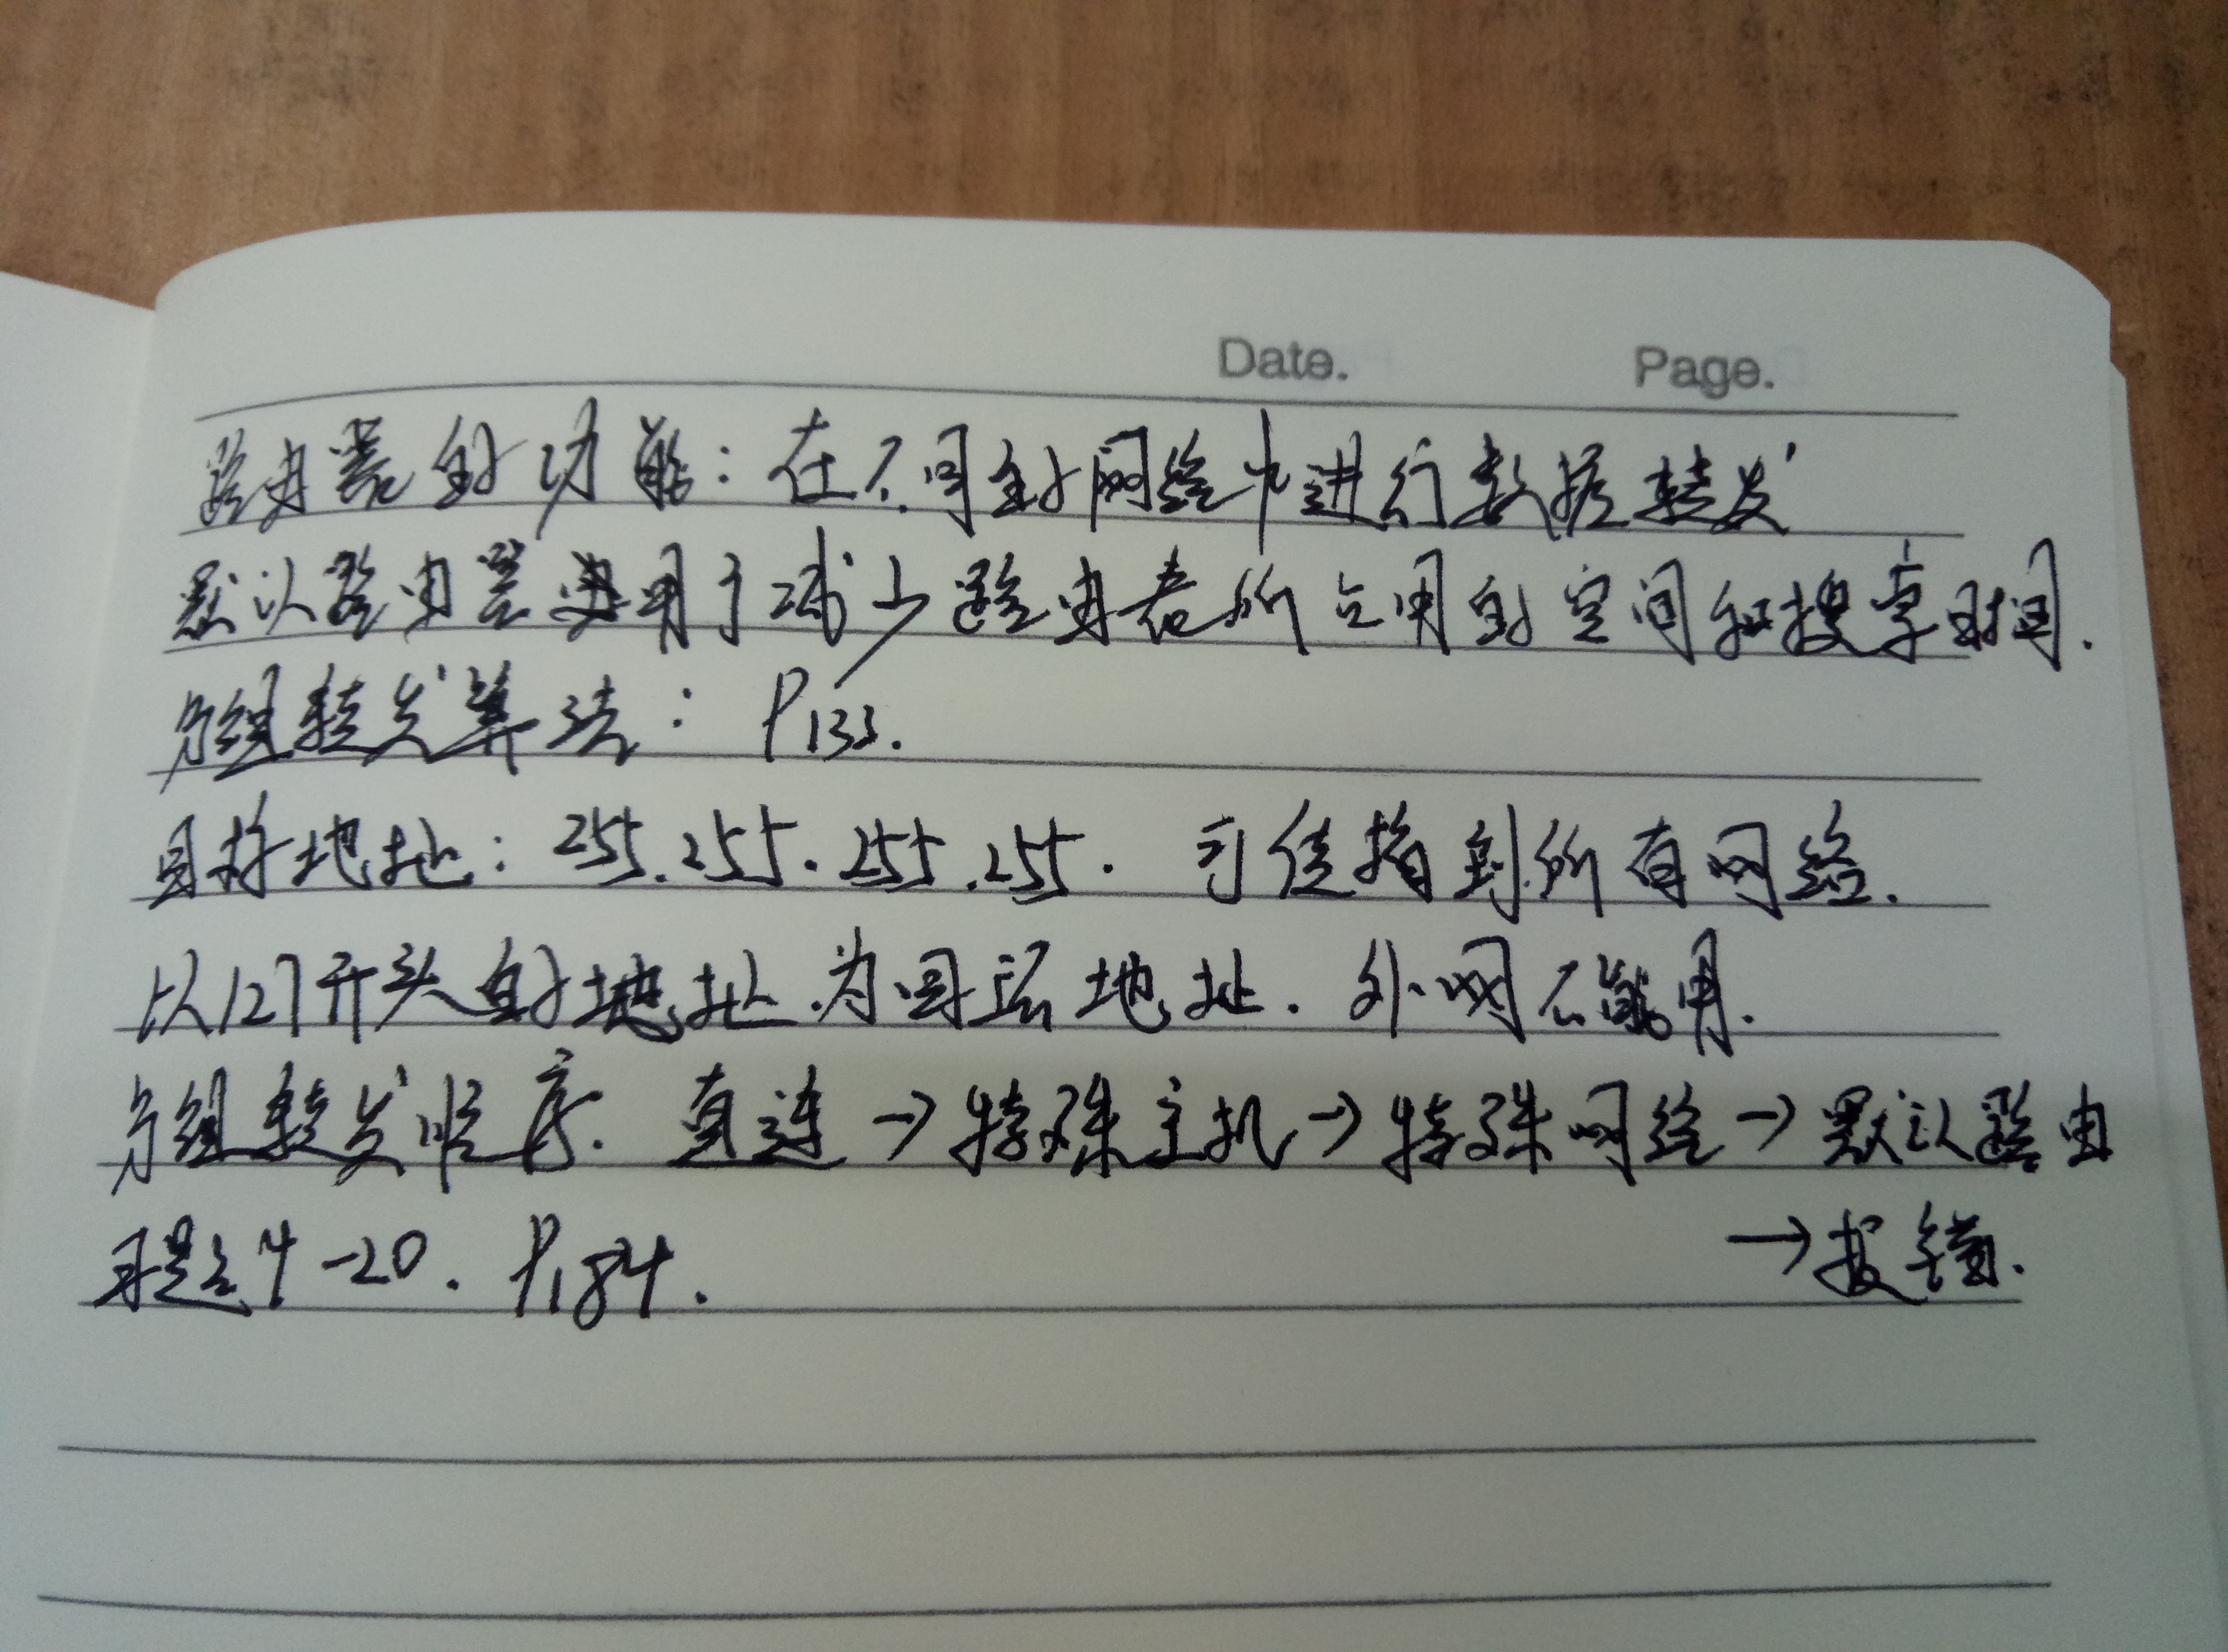 Date. Page.
路由器的功能：在不同的网络中进行数据转发
默认路由器用于减少路由表所占用的空间和搜索时间.
分组转发算法：P133.
目标地址：255.255.255.255. 可传播到所有网络.
以127开头的地址为回环地址. 外网不能用.
分组转发顺序. 直连→特殊主机→特殊网络→默认路由
→报错.
习题4-20. P184.